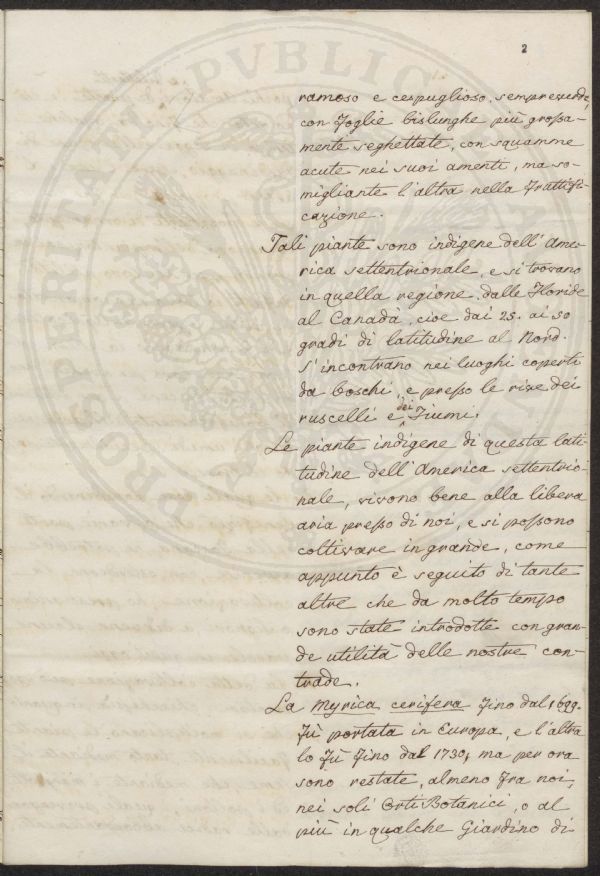 2
ramoso e cespuglioso, sempreverde,
con foglie bislunghe più grossa-
mente seghettate, con squamme
acute nei suoi amenti, ma so-
migliante l'altra nella fruttifi-
cazione.
Tali piante sono indigene dell'Ame-
rica settentrionale, e si trovano
in quella regione dalle Floride
al Canadà, cioè dai 25. ai 50
gradi di latitudine al Nord.
S'incontrano nei luoghi coperti
da boschi, e presso le rive dei
ruscelli e dei Fiumi.
Le piante indigene di questa lati-
tudine dell'America settentrio-
nale, vivono bene alla libera
aria presso di noi, e si possono
coltivare in grande, come
appunto è seguito di tante
altre che da molto tempo
sono state introdotte con gran-
de utilità delle nostre con-
trade.
La Myrica cerifera fino dal 1699.
fù portata in Europa, e l'altra
lo fù fino dal 1730, ma per ora
sono restate, almeno fra noi,
nei soli Orti Botanici, o al
più in qualche Giardino di
PROSPERITATI PUBLICAE